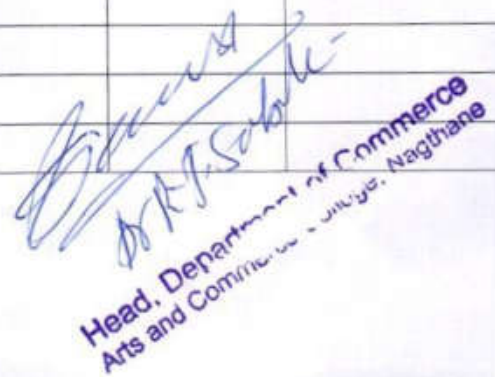 Dr R.J.
Head, Department of Commerce
Arts and Commerce College, Nagthane